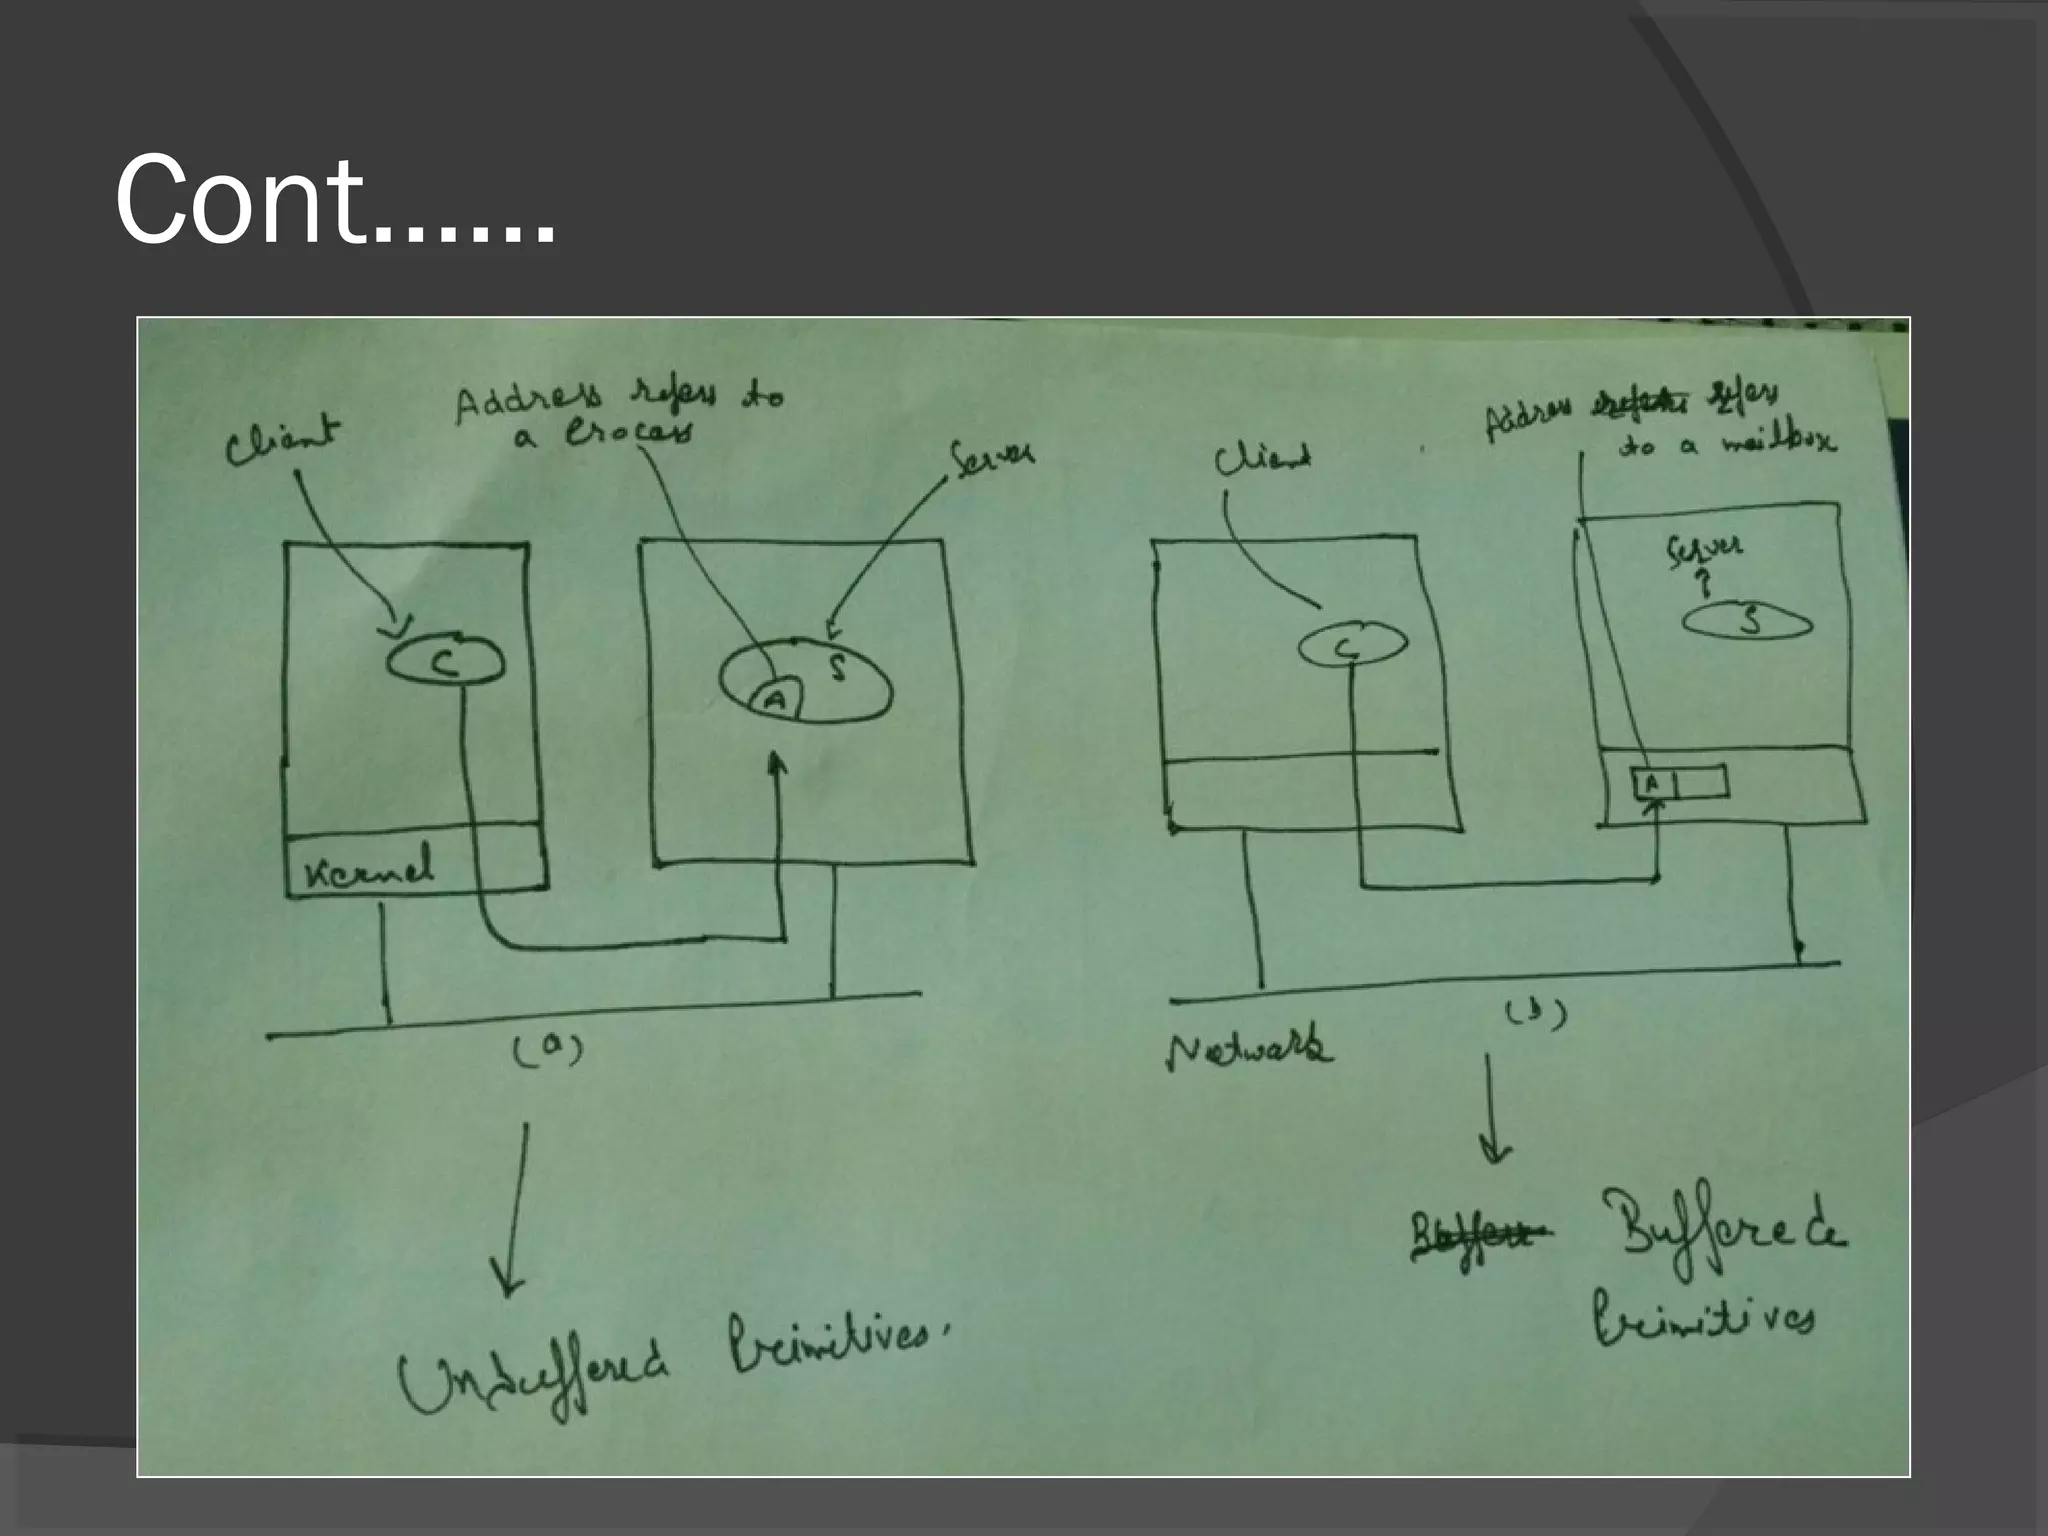 Cont......
Client
Address refers to
a Process
Server
C
S
A
Kernel
(a)
Unbuffered Primitives.
Client
Address refers
to a mailbox
Server
C
S
A
(b)
Network
Buffered
Primitives